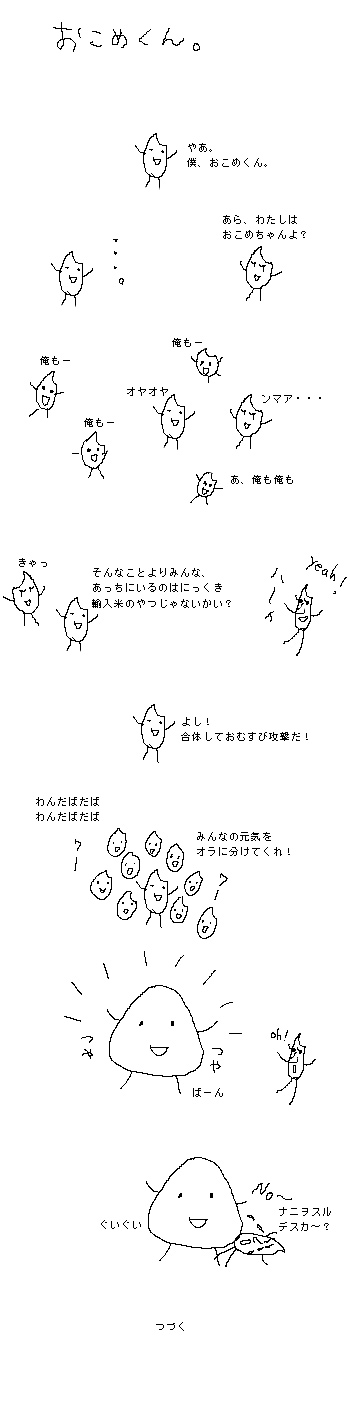 おこめくん。
やあ。
僕、おこめくん。
あら、わたしは
おこめちゃんよ？
俺もー
俺もー
オヤオヤ
ンマア・・・
俺もー
あ、俺も俺も
きゃっ
そんなことよりみんな、
あっちにいるのはにっくき
輸入米のやつじゃないかい？
ハーイ
yeah!
よし！
合体しておむすび攻撃だ！
わんだばだば
わんだばだば
みんなの元気を
オラに分けてくれ！
ワー
ワー
つや
つや
ばーん
oh!
ぐいぐい
No〜
ナニヲスル
デスカ〜？
つづく